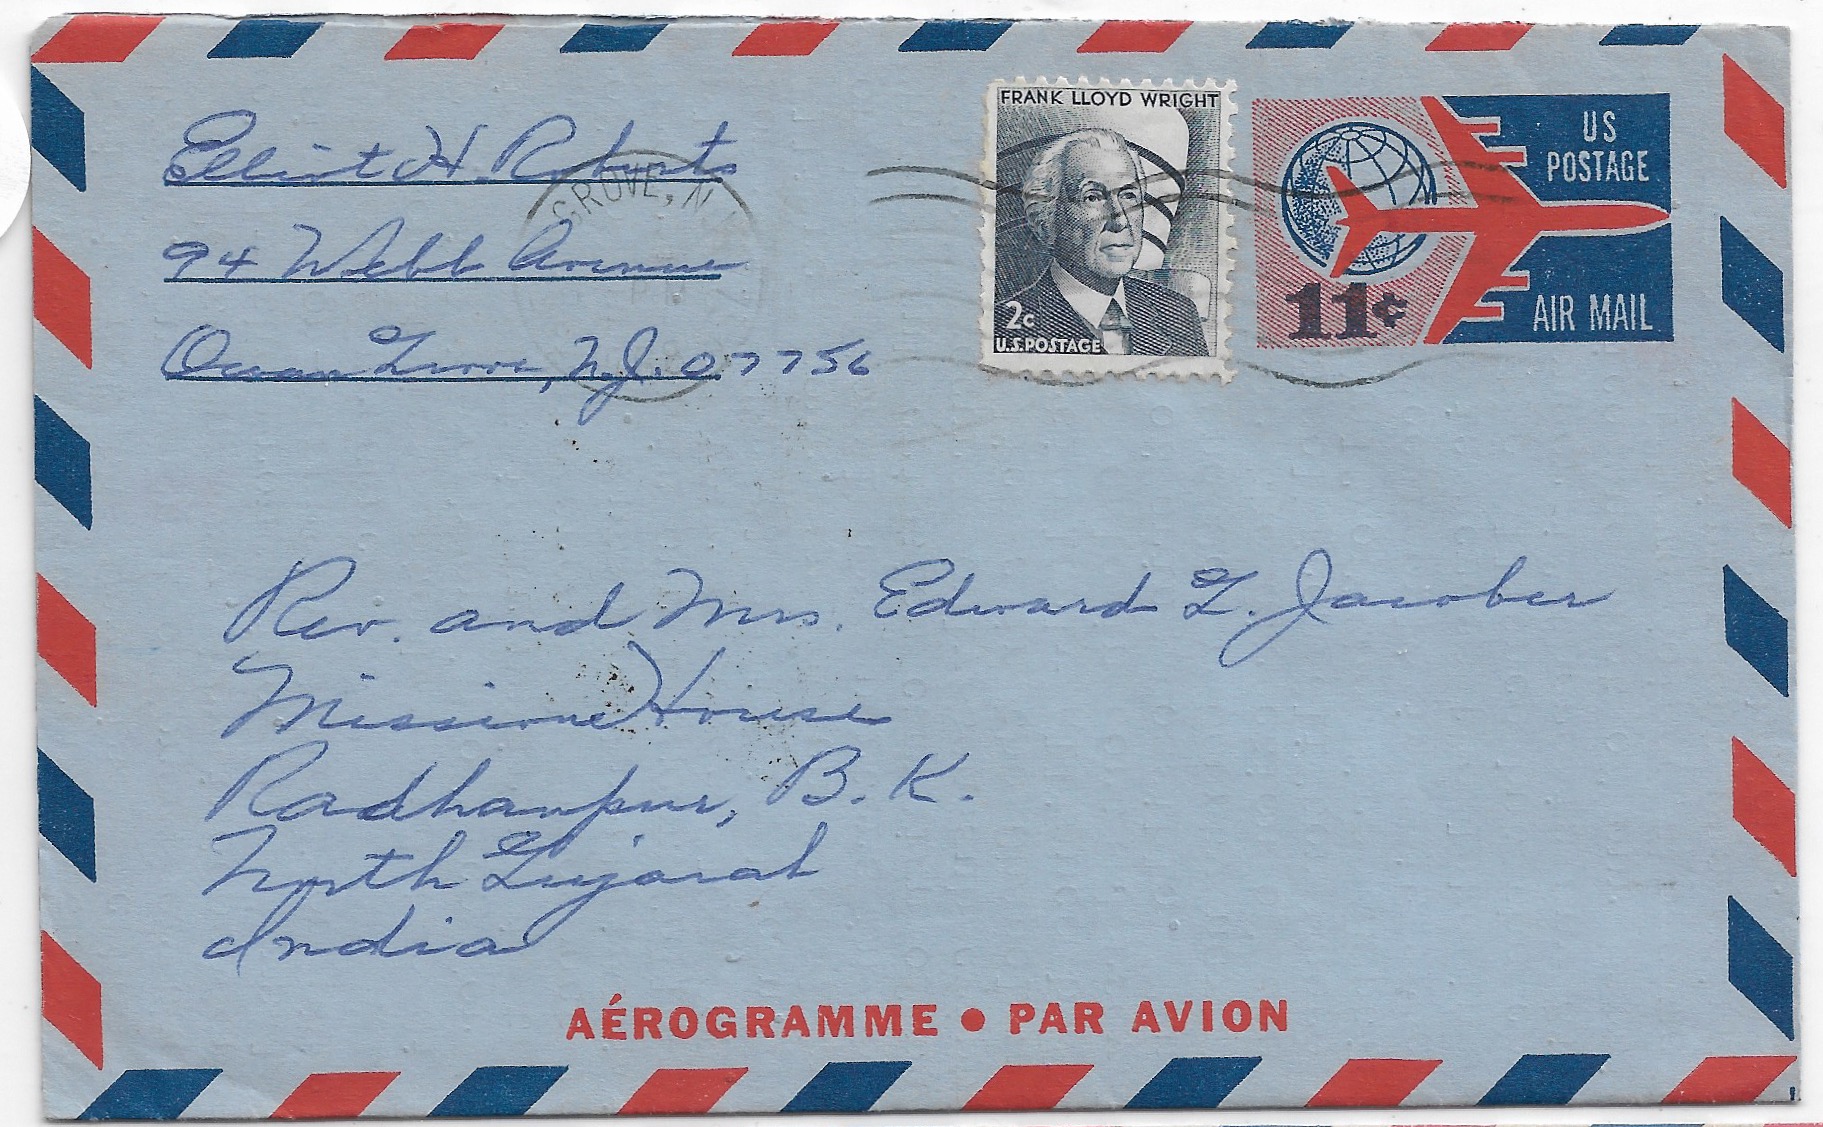 Elliot H. Roberts
94 Webb Avenue
Ocean Grove, N.J. 07756
GROVE, N
FRANK LLOYD WRIGHT
2c
U.S. POSTAGE
US
POSTAGE
11¢
AIR MAIL
Rev. and Mrs. Edward G. Jacober
Mission House
Radhanpur, B.K.
North Gujarat
India
AÉROGRAMME • PAR AVION